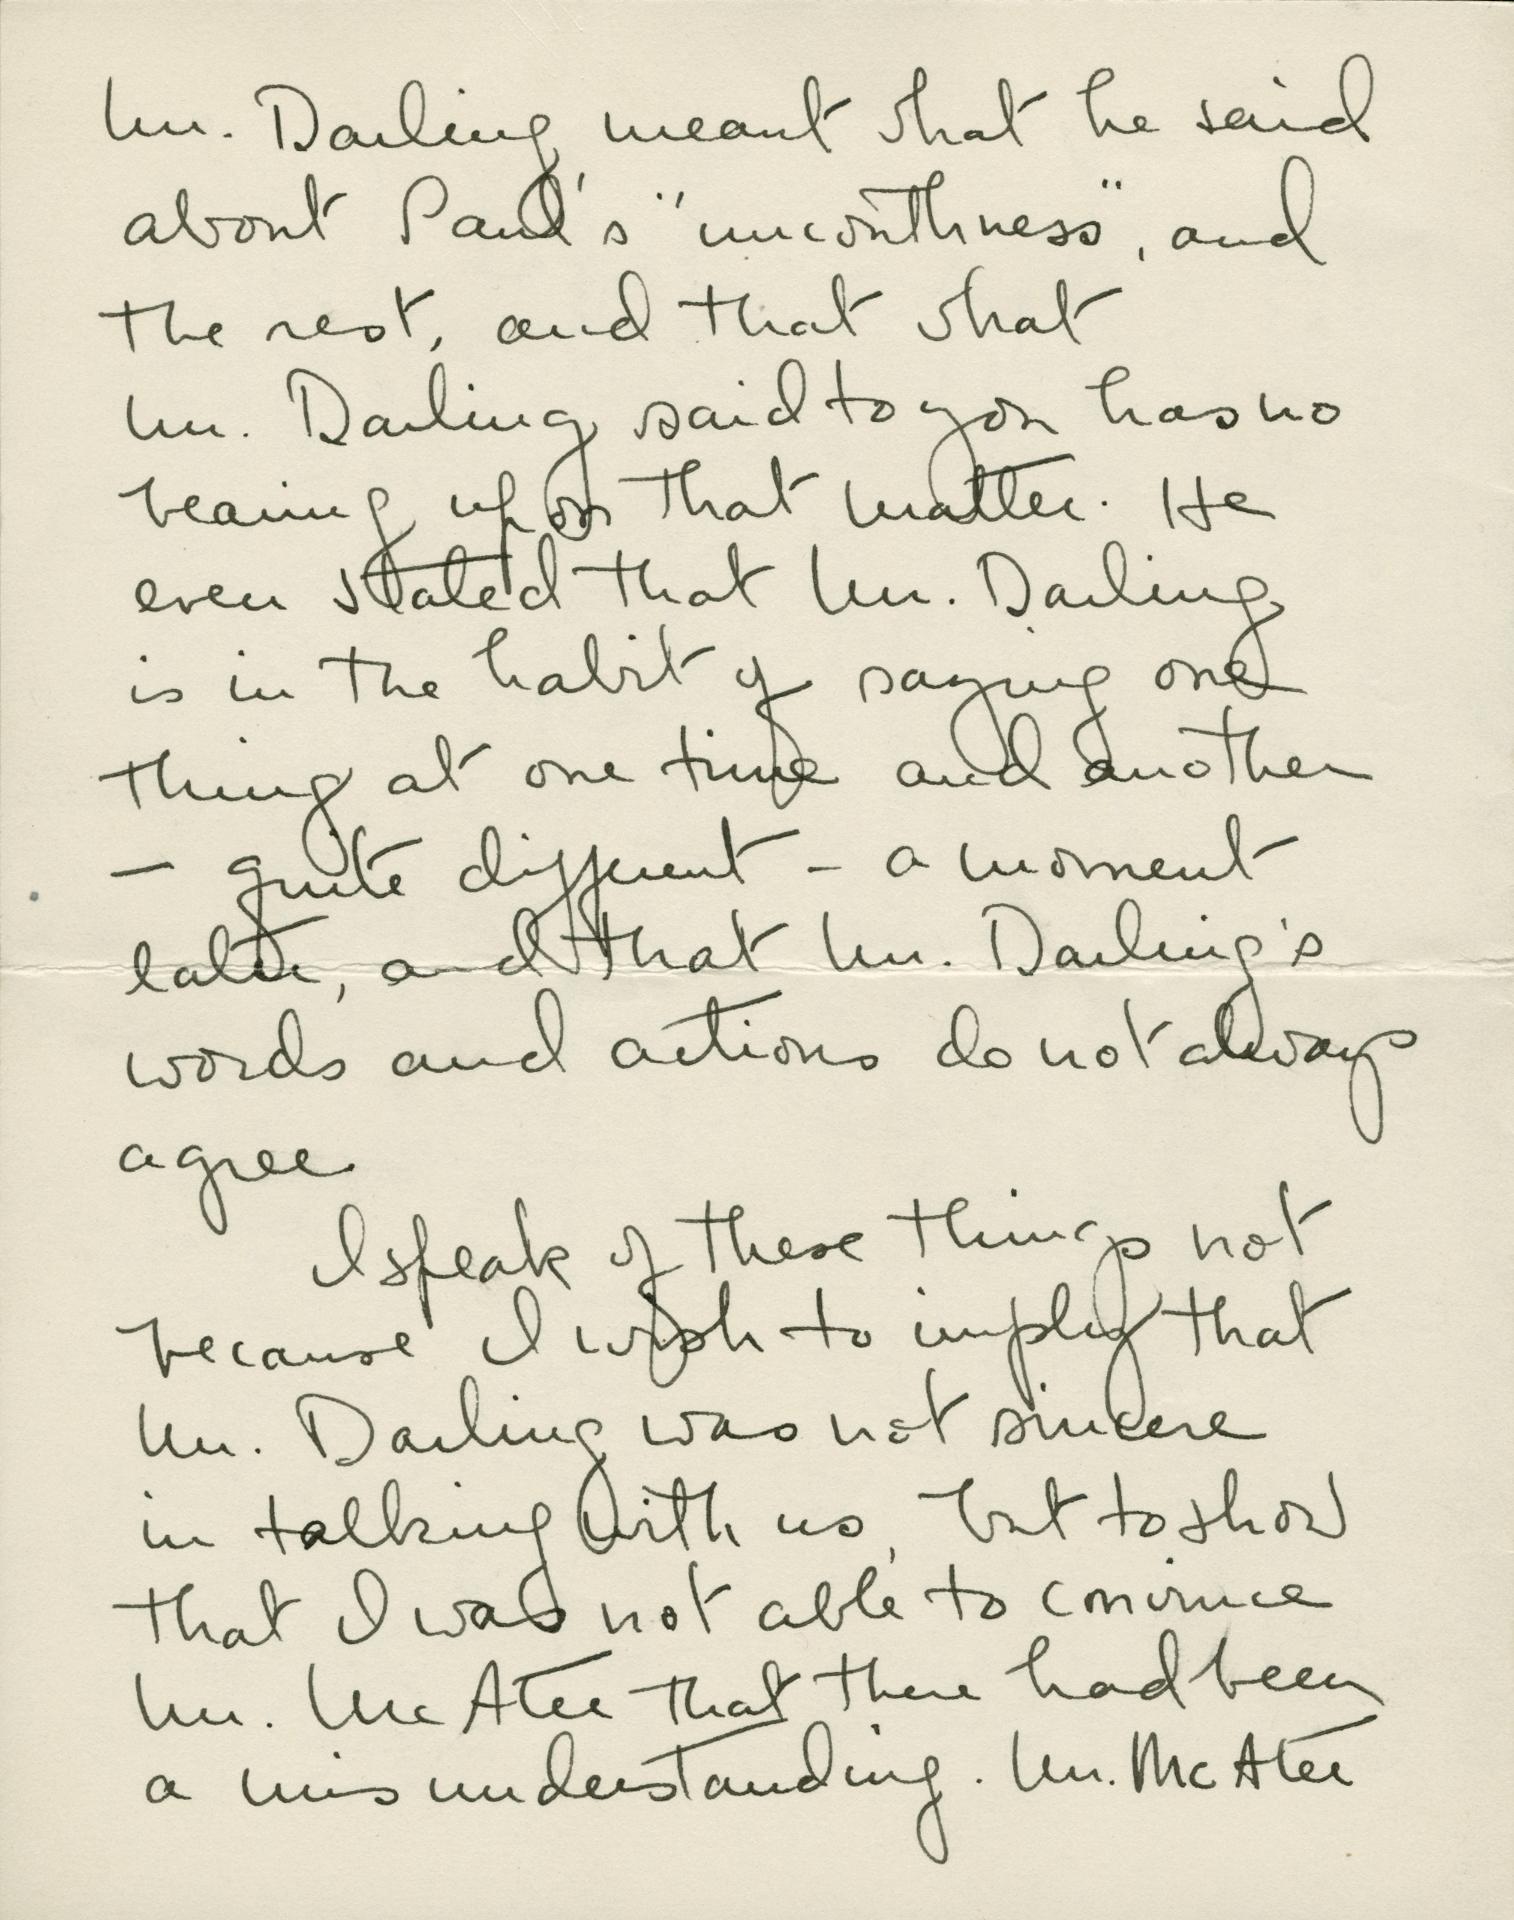 Mr. Darling meant what he said
about Paul's "unworthness", and
the rest, and that what
Mr. Darling said to you has no
bearing upon that matter. He
even stated that Mr. Darling
is in the habit of saying one
thing at one time and another
- quite different - a moment
later, and that Mr. Darling's
words and actions do not always
agree.
I speak of these things not
because I wish to imply that
Mr. Darling was not sincere
in talking with us, but to show
that I was not able to convince
Mr. McAtee that there had been
a misunderstanding. Mr. McAtee